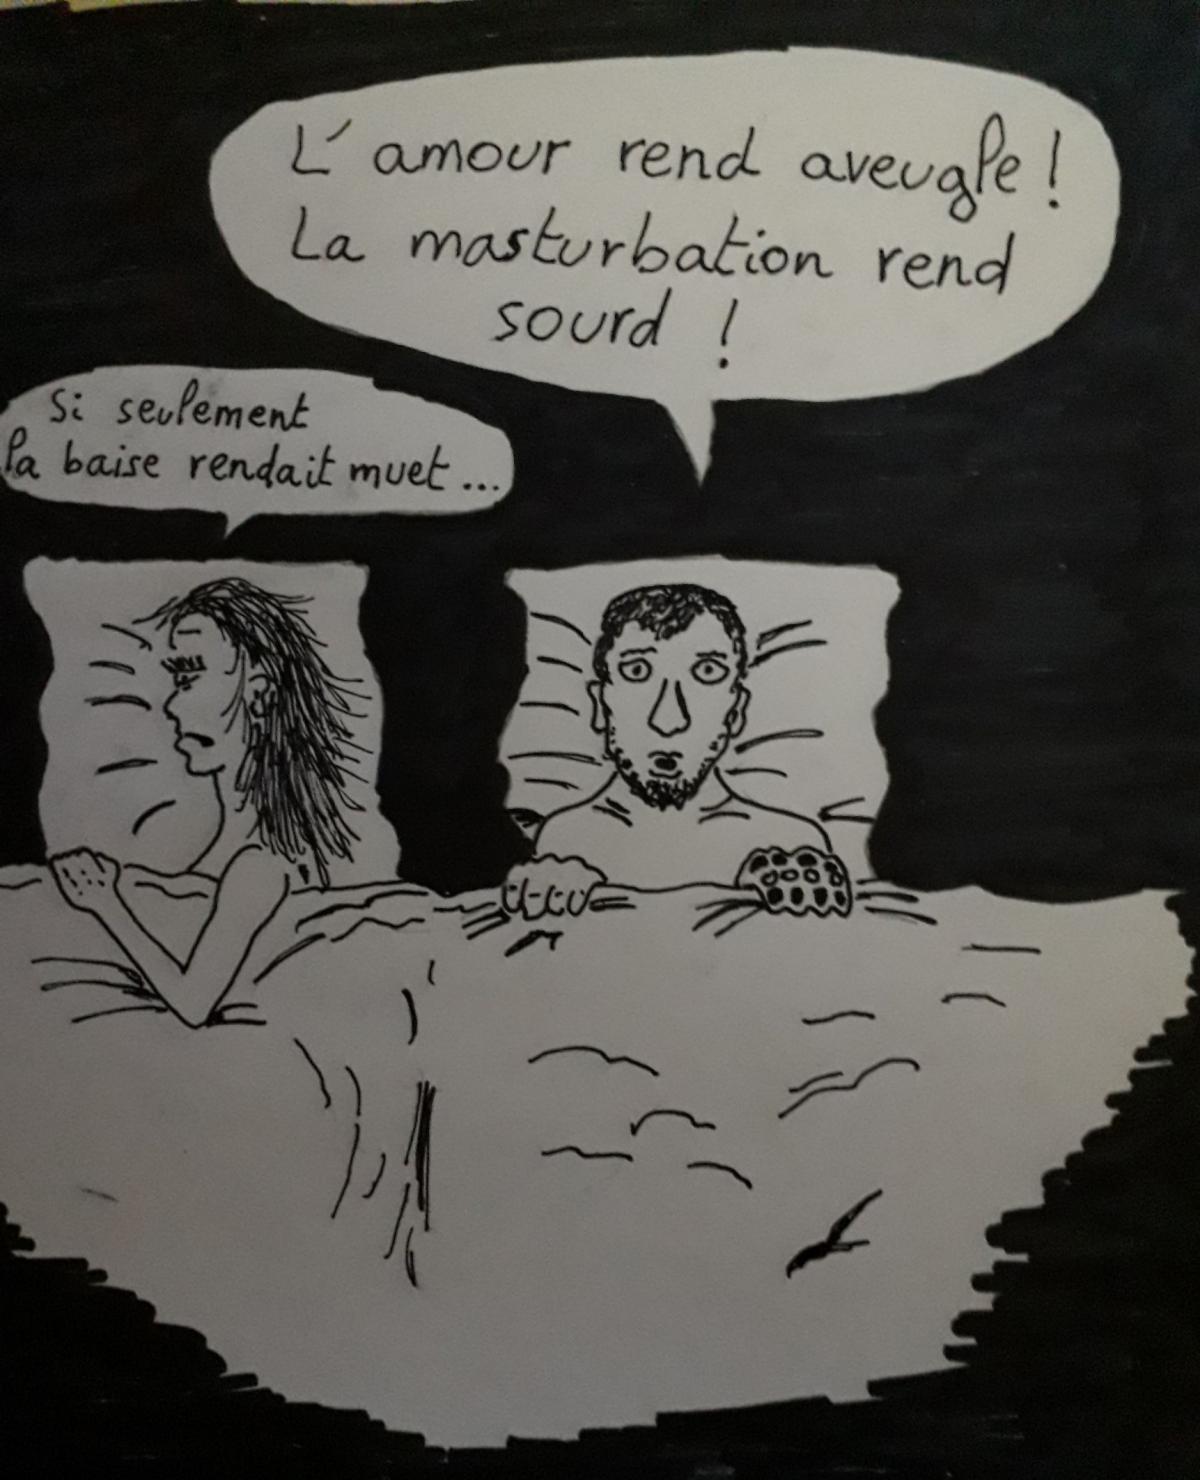 L'amour rend aveugle !
La masturbation rend
sourd !
Si seulement
la baise rendait muet...